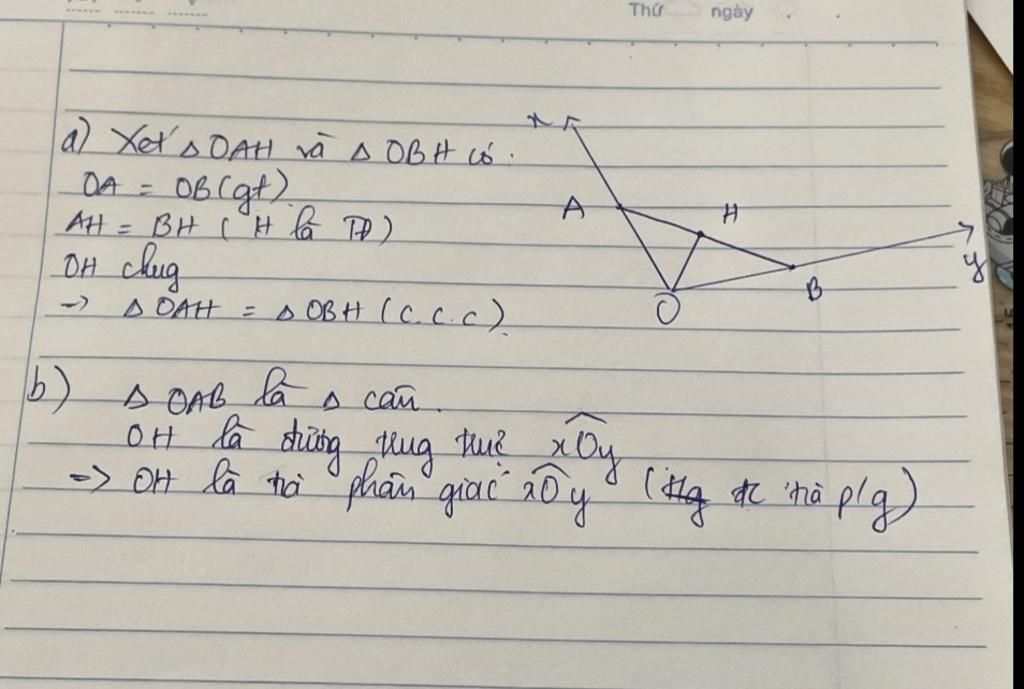 Thứ ngày
a) Xét △OAH và △OBH có.
OA = OB (gt).
AH = BH ( H là TĐ)
OH chug
-> △OAH = △OBH (c.c.c).
x
A
H
y
B
O
b) △OAB là △ cân.
OH là đường trug trực xOy
=> OH là tia phân giác xOy ( tia p/g)